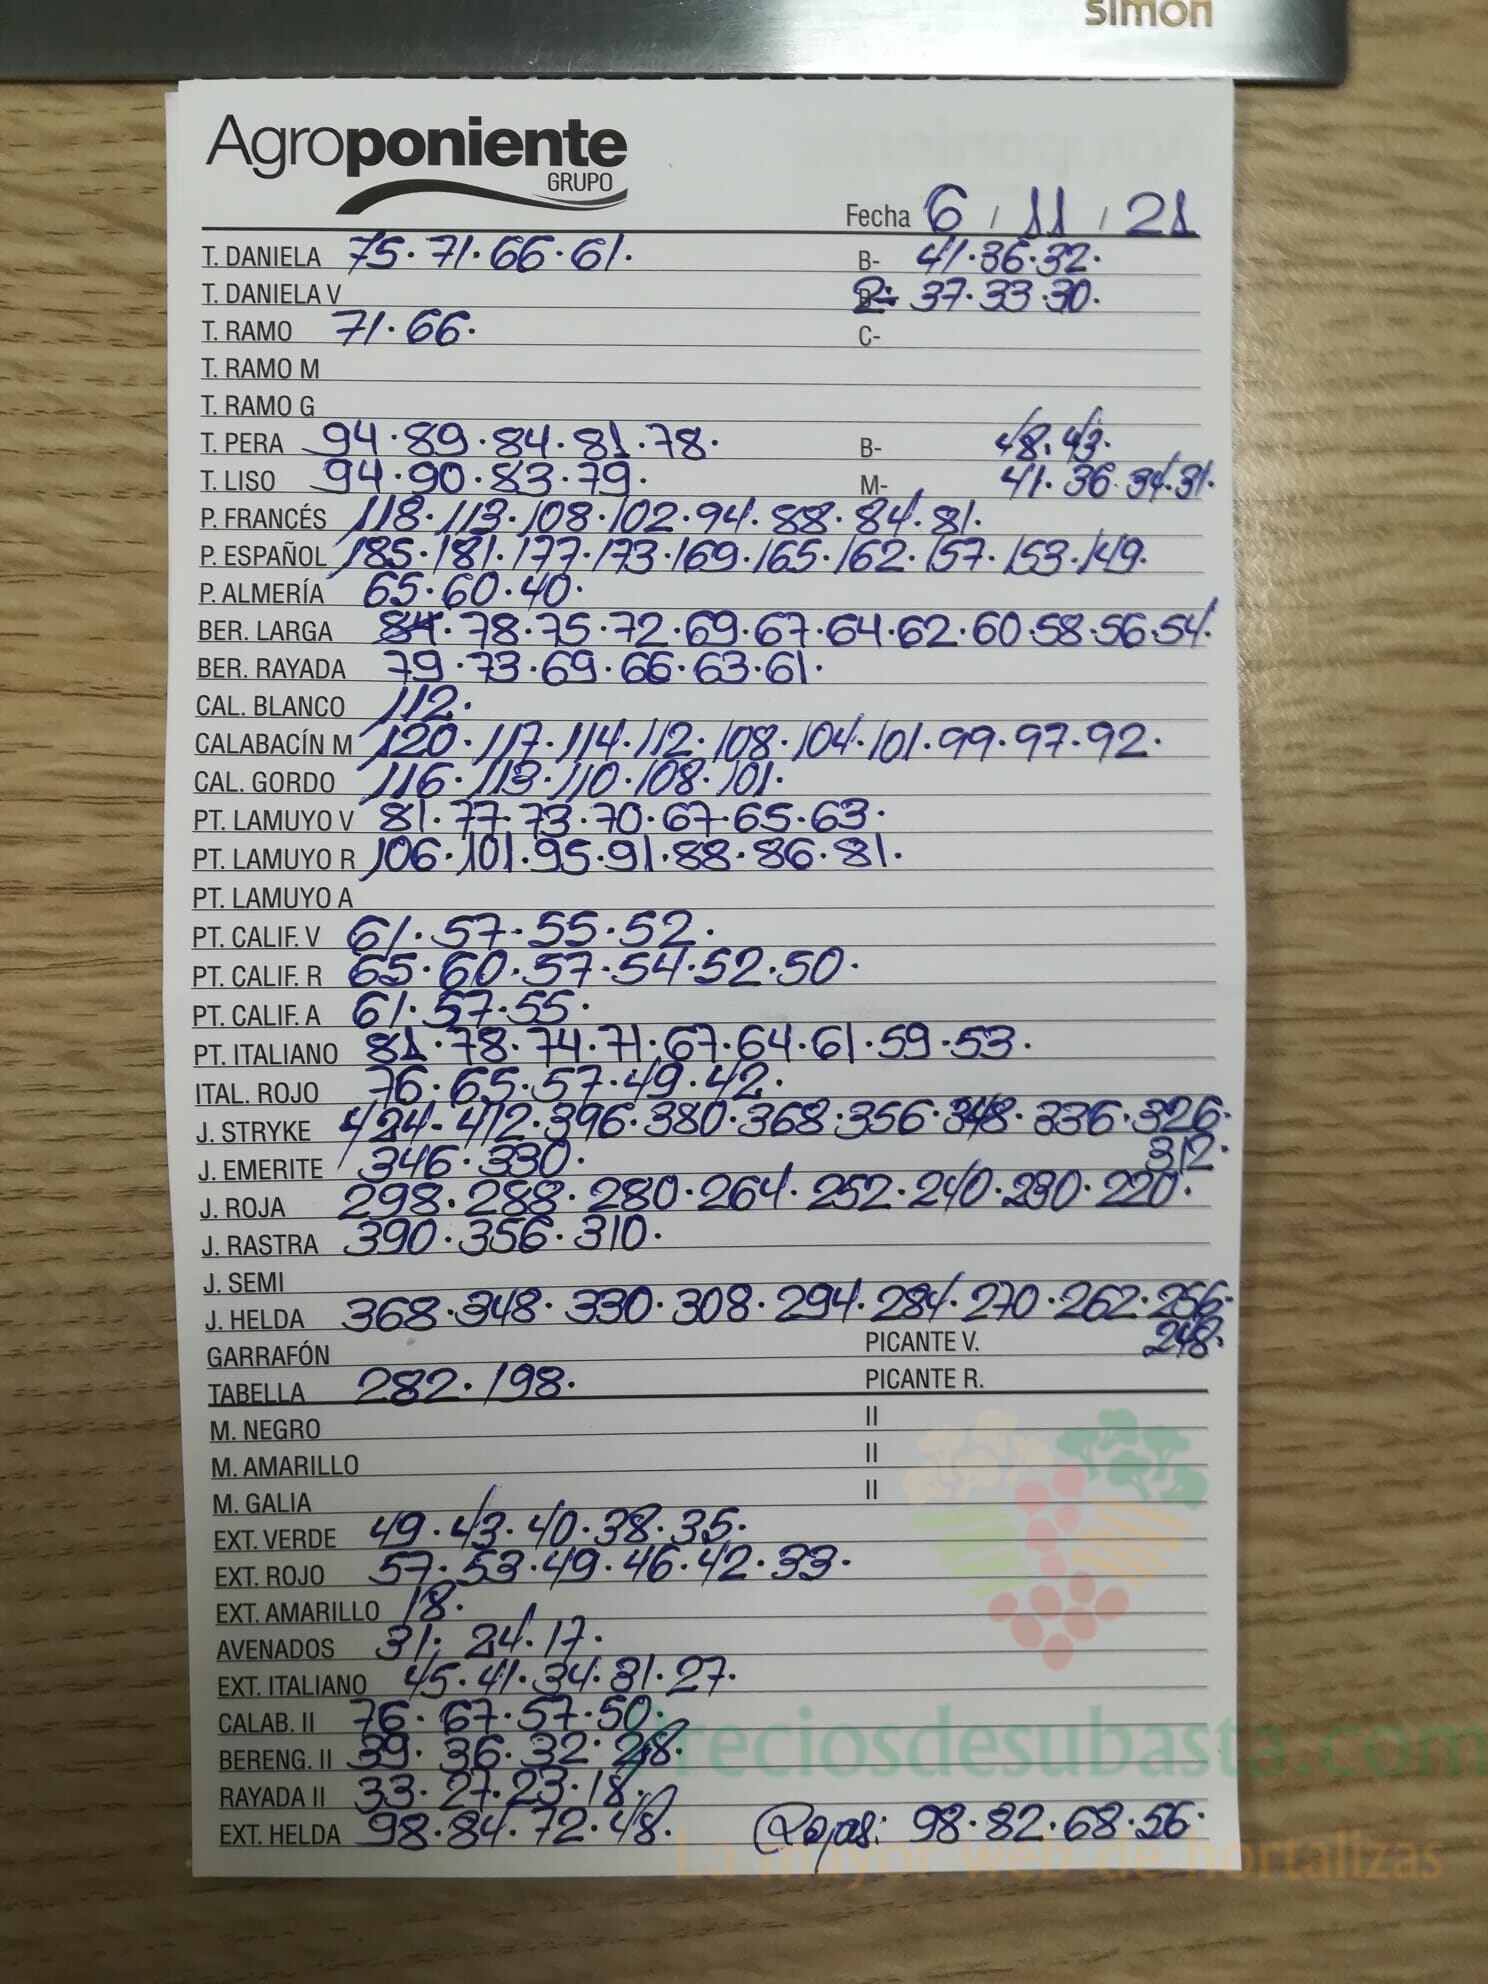 simon
Agroponiente
GRUPO
Fecha 6 / 11 / 21
T. DANIELA 75·71·66·61· B- 41·36·32·
T. DANIELA V 2- 37·33·30·
T. RAMO 71·66· C-
T. RAMO M
T. RAMO G
T. PERA 94·89·84·81·78· B- 48·43·
T. LISO 94·90·83·79· M- 41·36·34·31·
P. FRANCÉS 118·113·108·102·94·88·84·81·
P. ESPAÑOL 185·181·177·173·169·165·162·157·153·149·
P. ALMERÍA 65·60·40·
BER. LARGA 84·78·75·72·69·67·64·62·60·58·56·54·
BER. RAYADA 79·73·69·66·63·61·
CAL. BLANCO 112·
CALABACÍN M 120·117·114·112·108·104·101·99·97·92·
CAL. GORDO 116·113·110·108·101·
PT. LAMUYO V 81·77·73·70·67·65·63·
PT. LAMUYO R 106·101·95·91·88·86·81·
PT. LAMUYO A
PT. CALIF. V 61·57·55·52·
PT. CALIF. R 65·60·57·54·52·50·
PT. CALIF. A 61·57·55·
PT. ITALIANO 81·78·74·71·67·64·61·59·53·
ITAL. ROJO 76·65·57·49·42·
J. STRYKE 424·412·396·380·368·356·348·336·326·
312·
J. EMERITE 346·330·
J. ROJA 298·288·280·264·252·240·230·220·
J. RASTRA 390·356·310·
J. SEMI
J. HELDA 368·348·330·308·294·284·270·262·256·
248·
GARRAFÓN PICANTE V.
TABELLA 282·198· PICANTE R.
M. NEGRO II
M. AMARILLO II
M. GALIA II
EXT. VERDE 49·43·40·38·35·
EXT. ROJO 57·53·49·46·42·33·
EXT. AMARILLO 18·
AVENADOS 31·24·17·
EXT. ITALIANO 45·41·34·31·27·
CALAB. II 76·67·57·50·
BERENG. II 39·36·32·28·
RAYADA II 33·27·23·18·
EXT. HELDA 98·84·72·48· Rojas: 98·82·68·56·
Preciosdesubasta.com
La mayor web de hortalizas